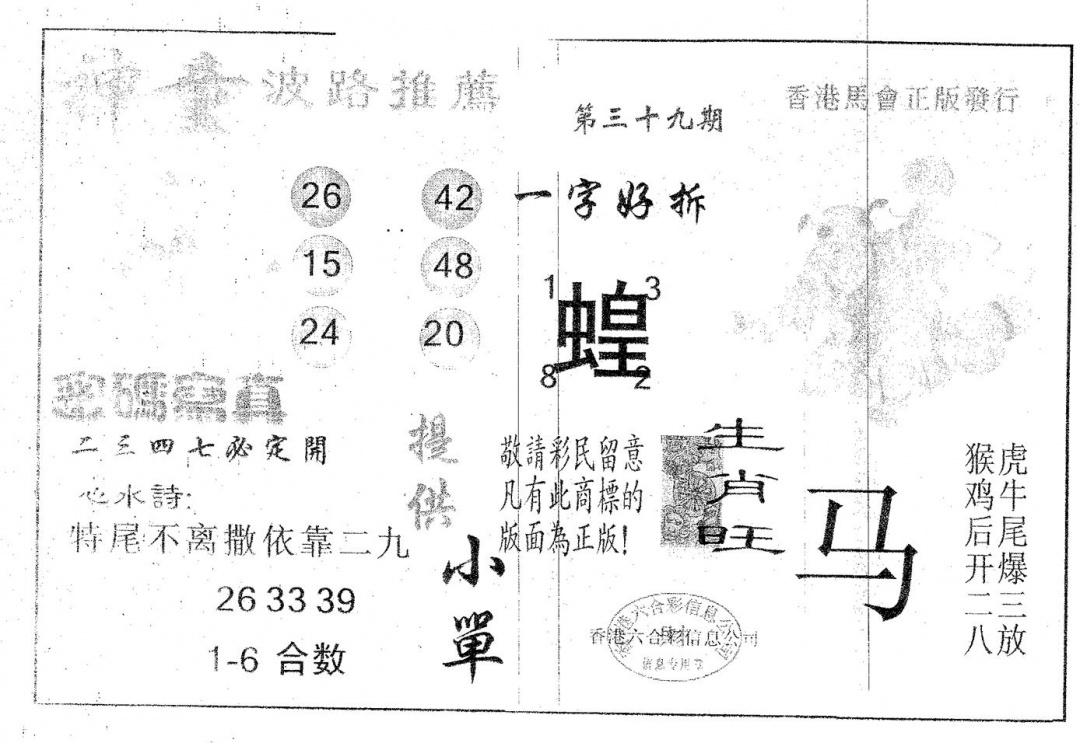 神童 波路推薦
第三十九期
香港馬會正版發行
26 42
15 48
24 20
一字好拆
1 3
蝗
8 2
密碼寫真
二三四七必定開
心水詩:
特尾不离撒依靠二九
26 33 39
1-6 合数
提供
小單
敬請彩民留意
凡有此商標的
版面為正版!
生肖旺
马
虎牛尾爆三放
猴鸡后开二八
香港六合彩信息公司
信息专用章